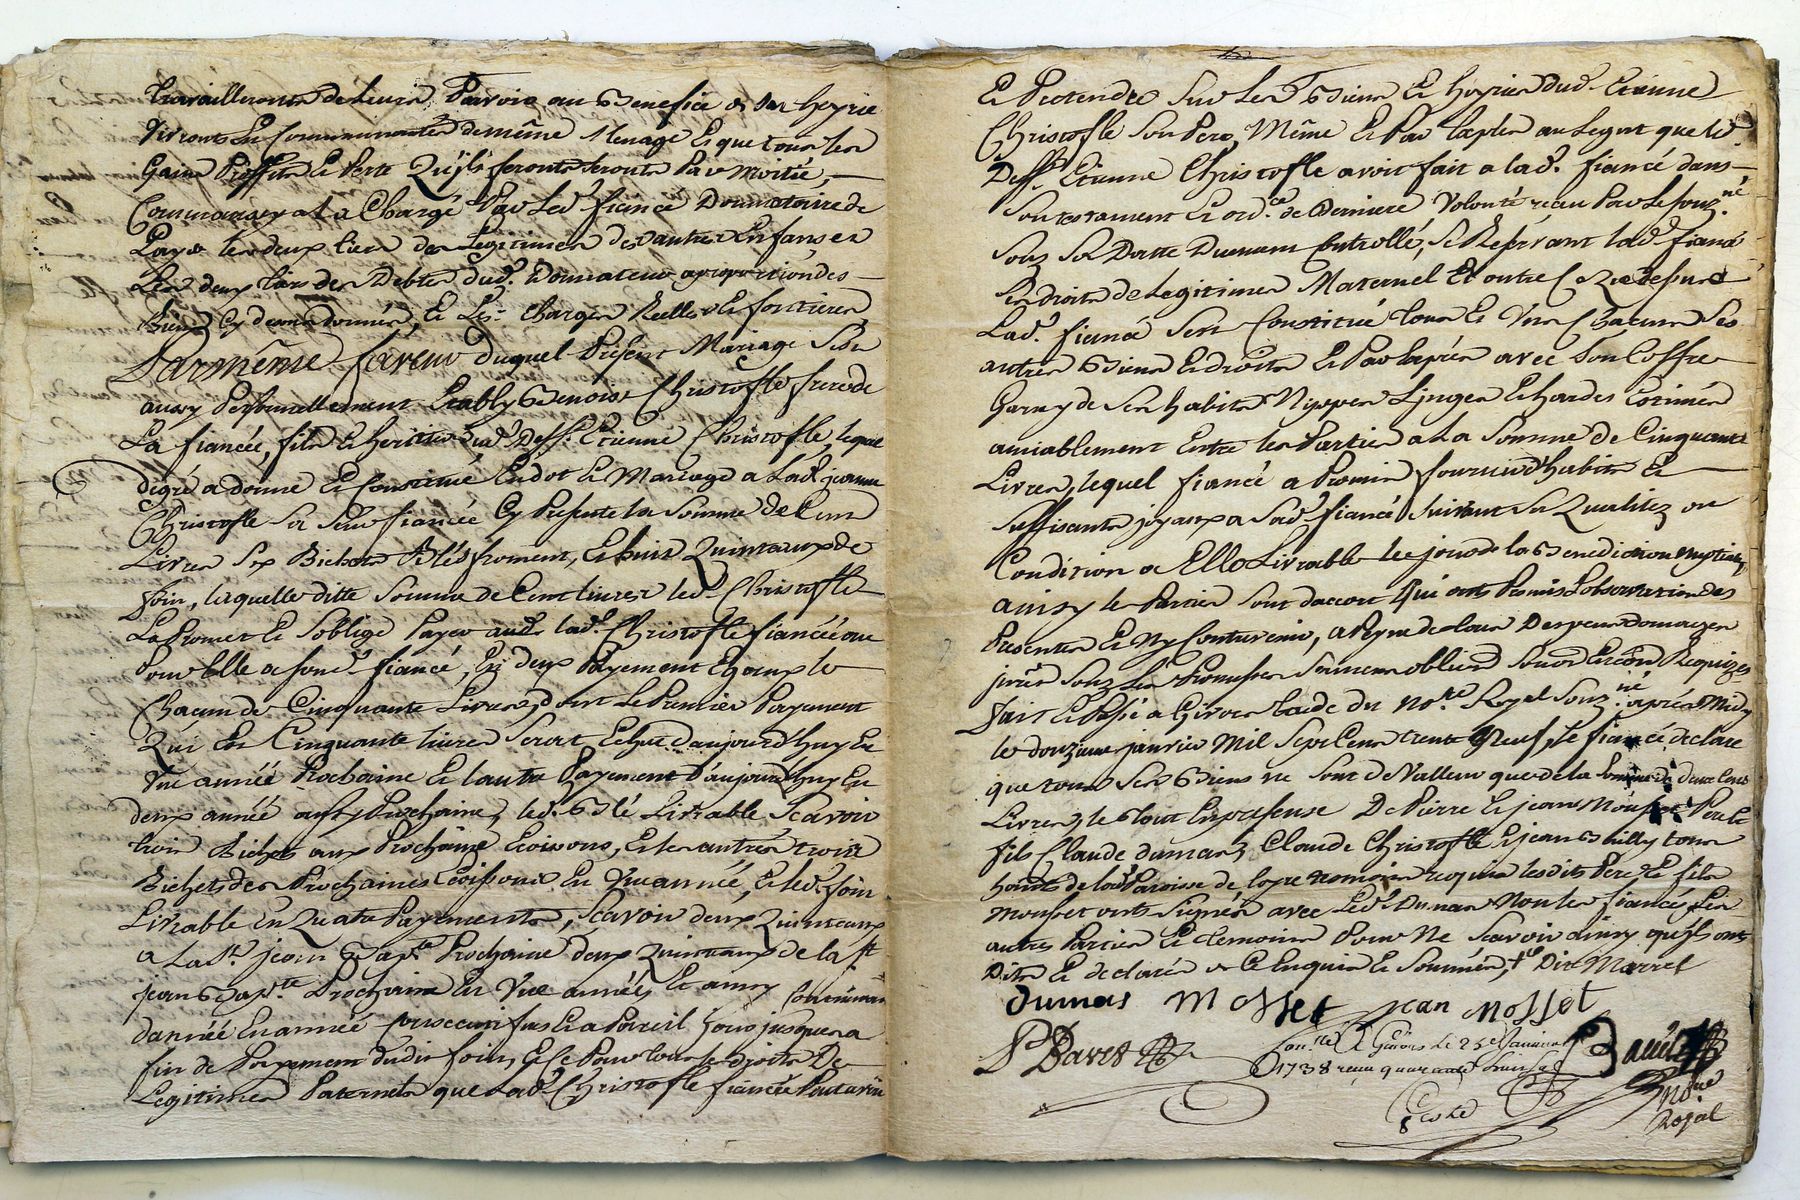 travailleronts de Leur Pouvoir au Benefice de Ses hoyrie
Vivronts En Communautée de même Menage Et que tous les
Gains Proffits Et Perte Qu'ils feronts Seronts Par Moitié,
a La Charge Par Led. fiancé Donnataire de
Payer les deux tiers des Legitimes des autres Enfans et
Les deux tiers des Debtes dud. Donnateur a proportion des
Biens Cy devant donnés, Et Les Charges Reelles Et foncieres
Par même faveur duquel Présent Mariage S'est
aussy Personnellement Etably Benoist Christofle frere de
La fiancée, fils Et heritier dud. Deff. Etienne Christofle, lequel
de gré a donné Et Constitué En dot Et Mariage a Lad. jeanne
Christofle Sa Sœur fiancée Cy Presente la Somme de Cent
Livres Six Bichets Bled froment, Et huit Quintaux de
foin, laquelle ditte Somme de Cent livres led. Christofle
La Promet Et S'oblige Payer a lad. Christofle fiancée ou
Pour Elle a Son d. fiancé, En deux Payement Egaux le
Chacun de Cinquante Livres, dont Le Premier Payement
Qui Est Cinquante livres Serat Echut d'aujourd'huy En
Une année Prochaine Et l'autre Payement d'aujourd'huy En
deux année aussy Prochaine, led. Blé Livrable Scavoir
trois Bichets aux Prochaine Moissons, Et les autres trois
Bichets des Prochaines Moissons En Une année, Et led. foin
Livrable En Quatre Payements, Scavoir deux Quintaux
a La St. jean Bapte. Prochaine deux Quintaux de la St.
jean Bapte. Prochaine En Une années Et ainsy Continuant
d'année En année Consecutifues Et a Pareil jours jusques a
fin de Payement dudit foin, Et Ce Pour tous les droits De
Legitimes Paternels que Lad. Christofle fiancée Pouvoit
Et Pretendre Sur Les Biens Et hoyries dud. Etienne
Christofle Son Pere, Même Et Par Exprés au Legat que le
Deff. Etienne Christofle avoit fait a lad. fiancé dans
Son testament Et ord.ce de Derniere Volonté reçu Par Le Souz.né
Souz Sa Datte Duement Controllé, Se Reservant lad. fiancé
Ses droits de Legitimes Maternel Et outre Ce
Lad. fiancé S'est Constitué tous Et Uns Chacuns Ses
autres Biens Et droits Et Par Exprés avec Son Coffre
Garny de Ses habits Nippes Linges Et hardes Estimés
amiablement Entre les Parties a La Somme de Cinquante
Livres, lequel fiancé a Promis fournir d'habits Et
Suffisants joyaux a Sad. fiancé Suivant Sa Qualitez ou
Condition a Elle Livrable le jour de la Benediction Nuptiale
ainsy les Parties Sont d'accort Qui onts Promis L'observation des
Presentes Et N'y Contrevenir, a Peyne de tous Despens Domages
fait Et Passé a Givors Etude du No.re Royal Souz.né après Midy
le douzieme janvier Mil Sept Cent trente Neuf, le fiancé declare
que tous Ses Biens ne Sont de Valleur que de la Somme de deux Cens
Livres, le tout En presense De Pierre Et jean Mousset Pere Et
fils Claude dumas, Claude Christofle Et jean Billy tous
habits de lad. Paroisse de Loyre temoins requis lesdits Pere Et fils
Mousset onts Signés avec Led. Dumas Non les fiancés, Les
autres Parties Et temoins Pour Ne Scavoir ainsy qu'ils ont
Dits Et declarés de Ce Enquis Et Sommés,
dumas Mosset jean Mosset
P Davet
Con.llé A Givors Le 25e Janvier
1738
no.re
Royal